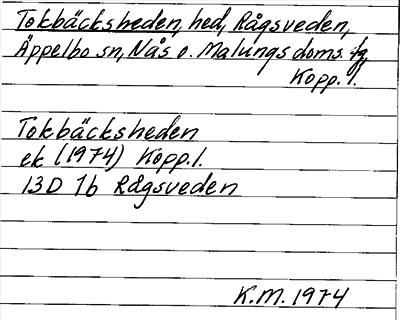 Tokbäcksheden, hed, Rågsveden,
Äppelbo sn, Nås o. Malungs doms. fg,
Kopp. l.
Tokbäcksheden
ek (1974) Kopp. l.
13D 7b Rågsveden
K.M. 1974